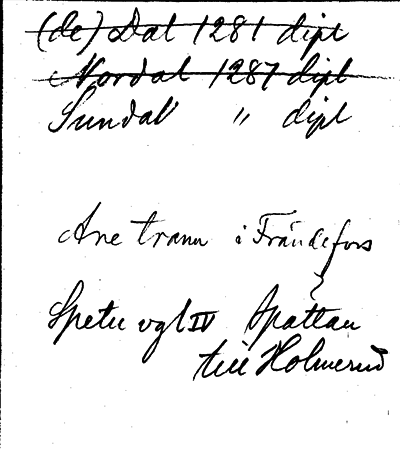 (de) Dal 1281 dipl
Nordal 1287 dipl
Sundal " dipl
Ane trann i Frändefors
Spetu vgl IV Spattan
till Holmerud